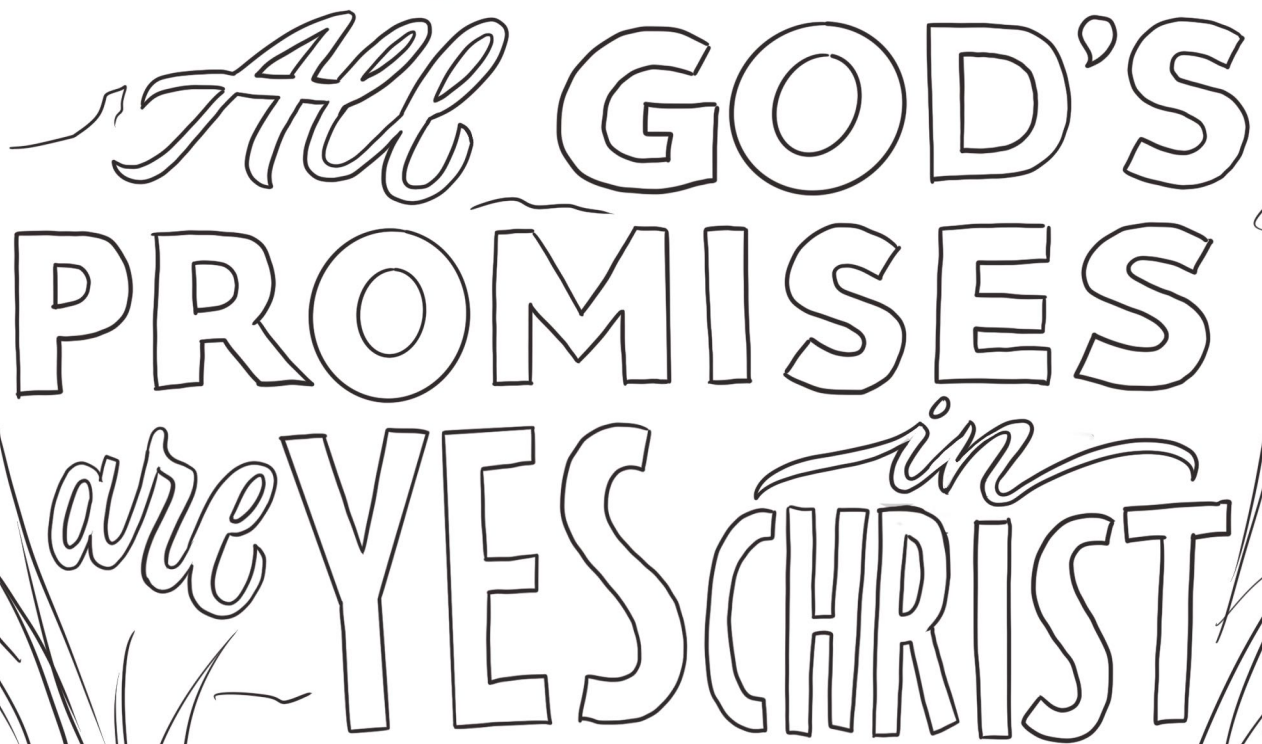 All GOD'S
PROMISES
are YES in
CHRIST